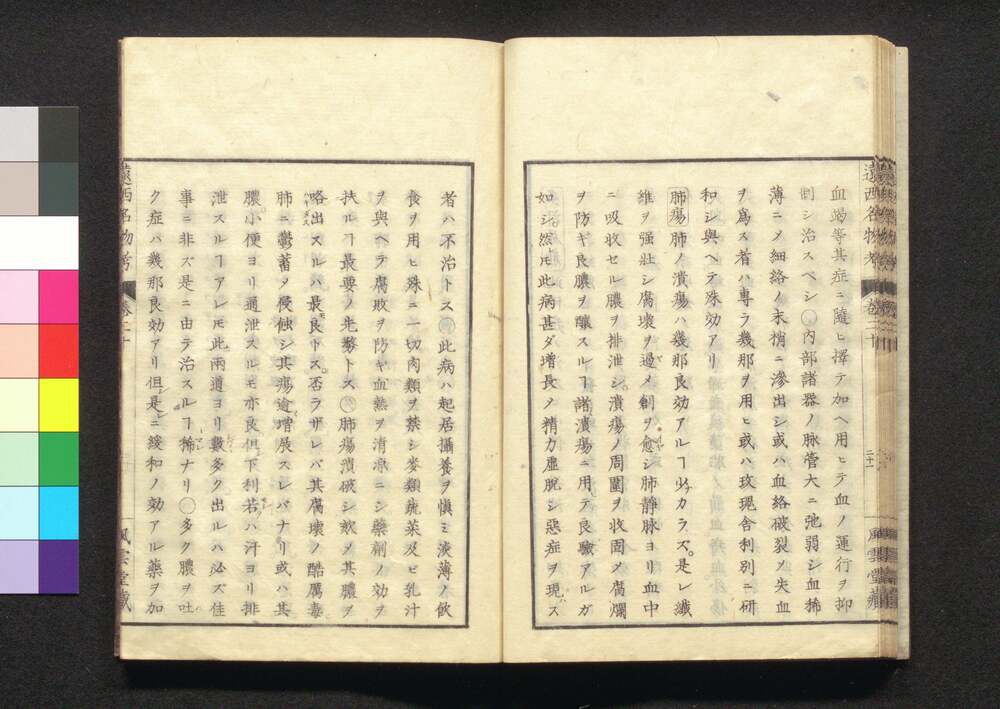 血竭等其症ニ隨ヒ擇テ加ヘ用ヒテ血ノ運行ヲ抑
制シ治スベシ○内部諸器ノ脉管大ニ弛弱シ血稀
薄ニメ細絡ノ末梢ニ滲出シ或ハ血絡破裂メ失血
ヲ爲ス者ハ専ラ幾那ヲ用ヒ或ハ玫瑰舎利別ニ研
和シ與ヘテ殊効アリ
肺瘍肺ノ潰瘍ハ幾那良効アルヿ少カラズ。是レ纎
維ヲ强壯シ腐壊ヲ遏メ創ヲ愈シ肺靜脉ヨリ血中
ニ吸收セル膿ヲ排泄シ。潰瘍ノ周圍ヲ收固メ腐爛
ヲ防ギ良膿ヲ釀スルヿ諸潰瘍ニ用テ良驗アルガ
如シ然𪜈此病甚ダ増長メ精力虚脱シ惡症ヲ現ス
遠西名物考
卷二十
二十一
風雲堂藏
者ハ不治トス○此病ハ起居攝養ヲ愼ミ淡薄ノ飲
食ヲ用ヒ殊ニ一切肉類ヲ禁シ麥類蔬菜及ヒ乳汁
ヲ與ヘテ腐敗ヲ防ギ血熱ヲ清凉ニシ藥劑ノ効ヲ
扶ルヿ最要ノ先務トス○肺瘍潰破シ欬メ其膿ヲ
咯出スルハ最良トス。否ラザレバ其腐壊ノ酷厲毒
肺ニ鬱蓄メ侵蝕シ其瘍逾増展スレバナリ或ハ其
膿小便ヨリ通泄スルモ亦良但下利若ハ汗ヨリ排
泄スルヿアレ𪜈此兩道ヨリ數多ク出ルハ必ズ佳
事ニ非ズ是ニ由テ治スルヿ稀ナリ○多ク膿ヲ吐
ク症ハ幾那良効アリ但是ニ緩和ノ効アル藥ヲ加
遠西名物考
卷二十
風雲堂藏